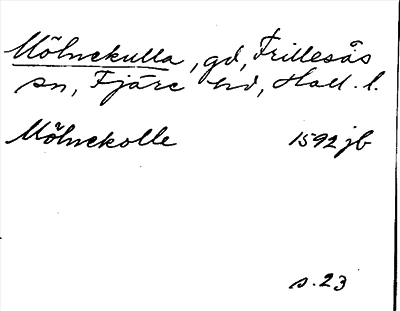 Mölnekulla, gd, Frillesås
sn, Fjäre hd, Hall. l.
Mölnekolle 1592 jb
s. 23